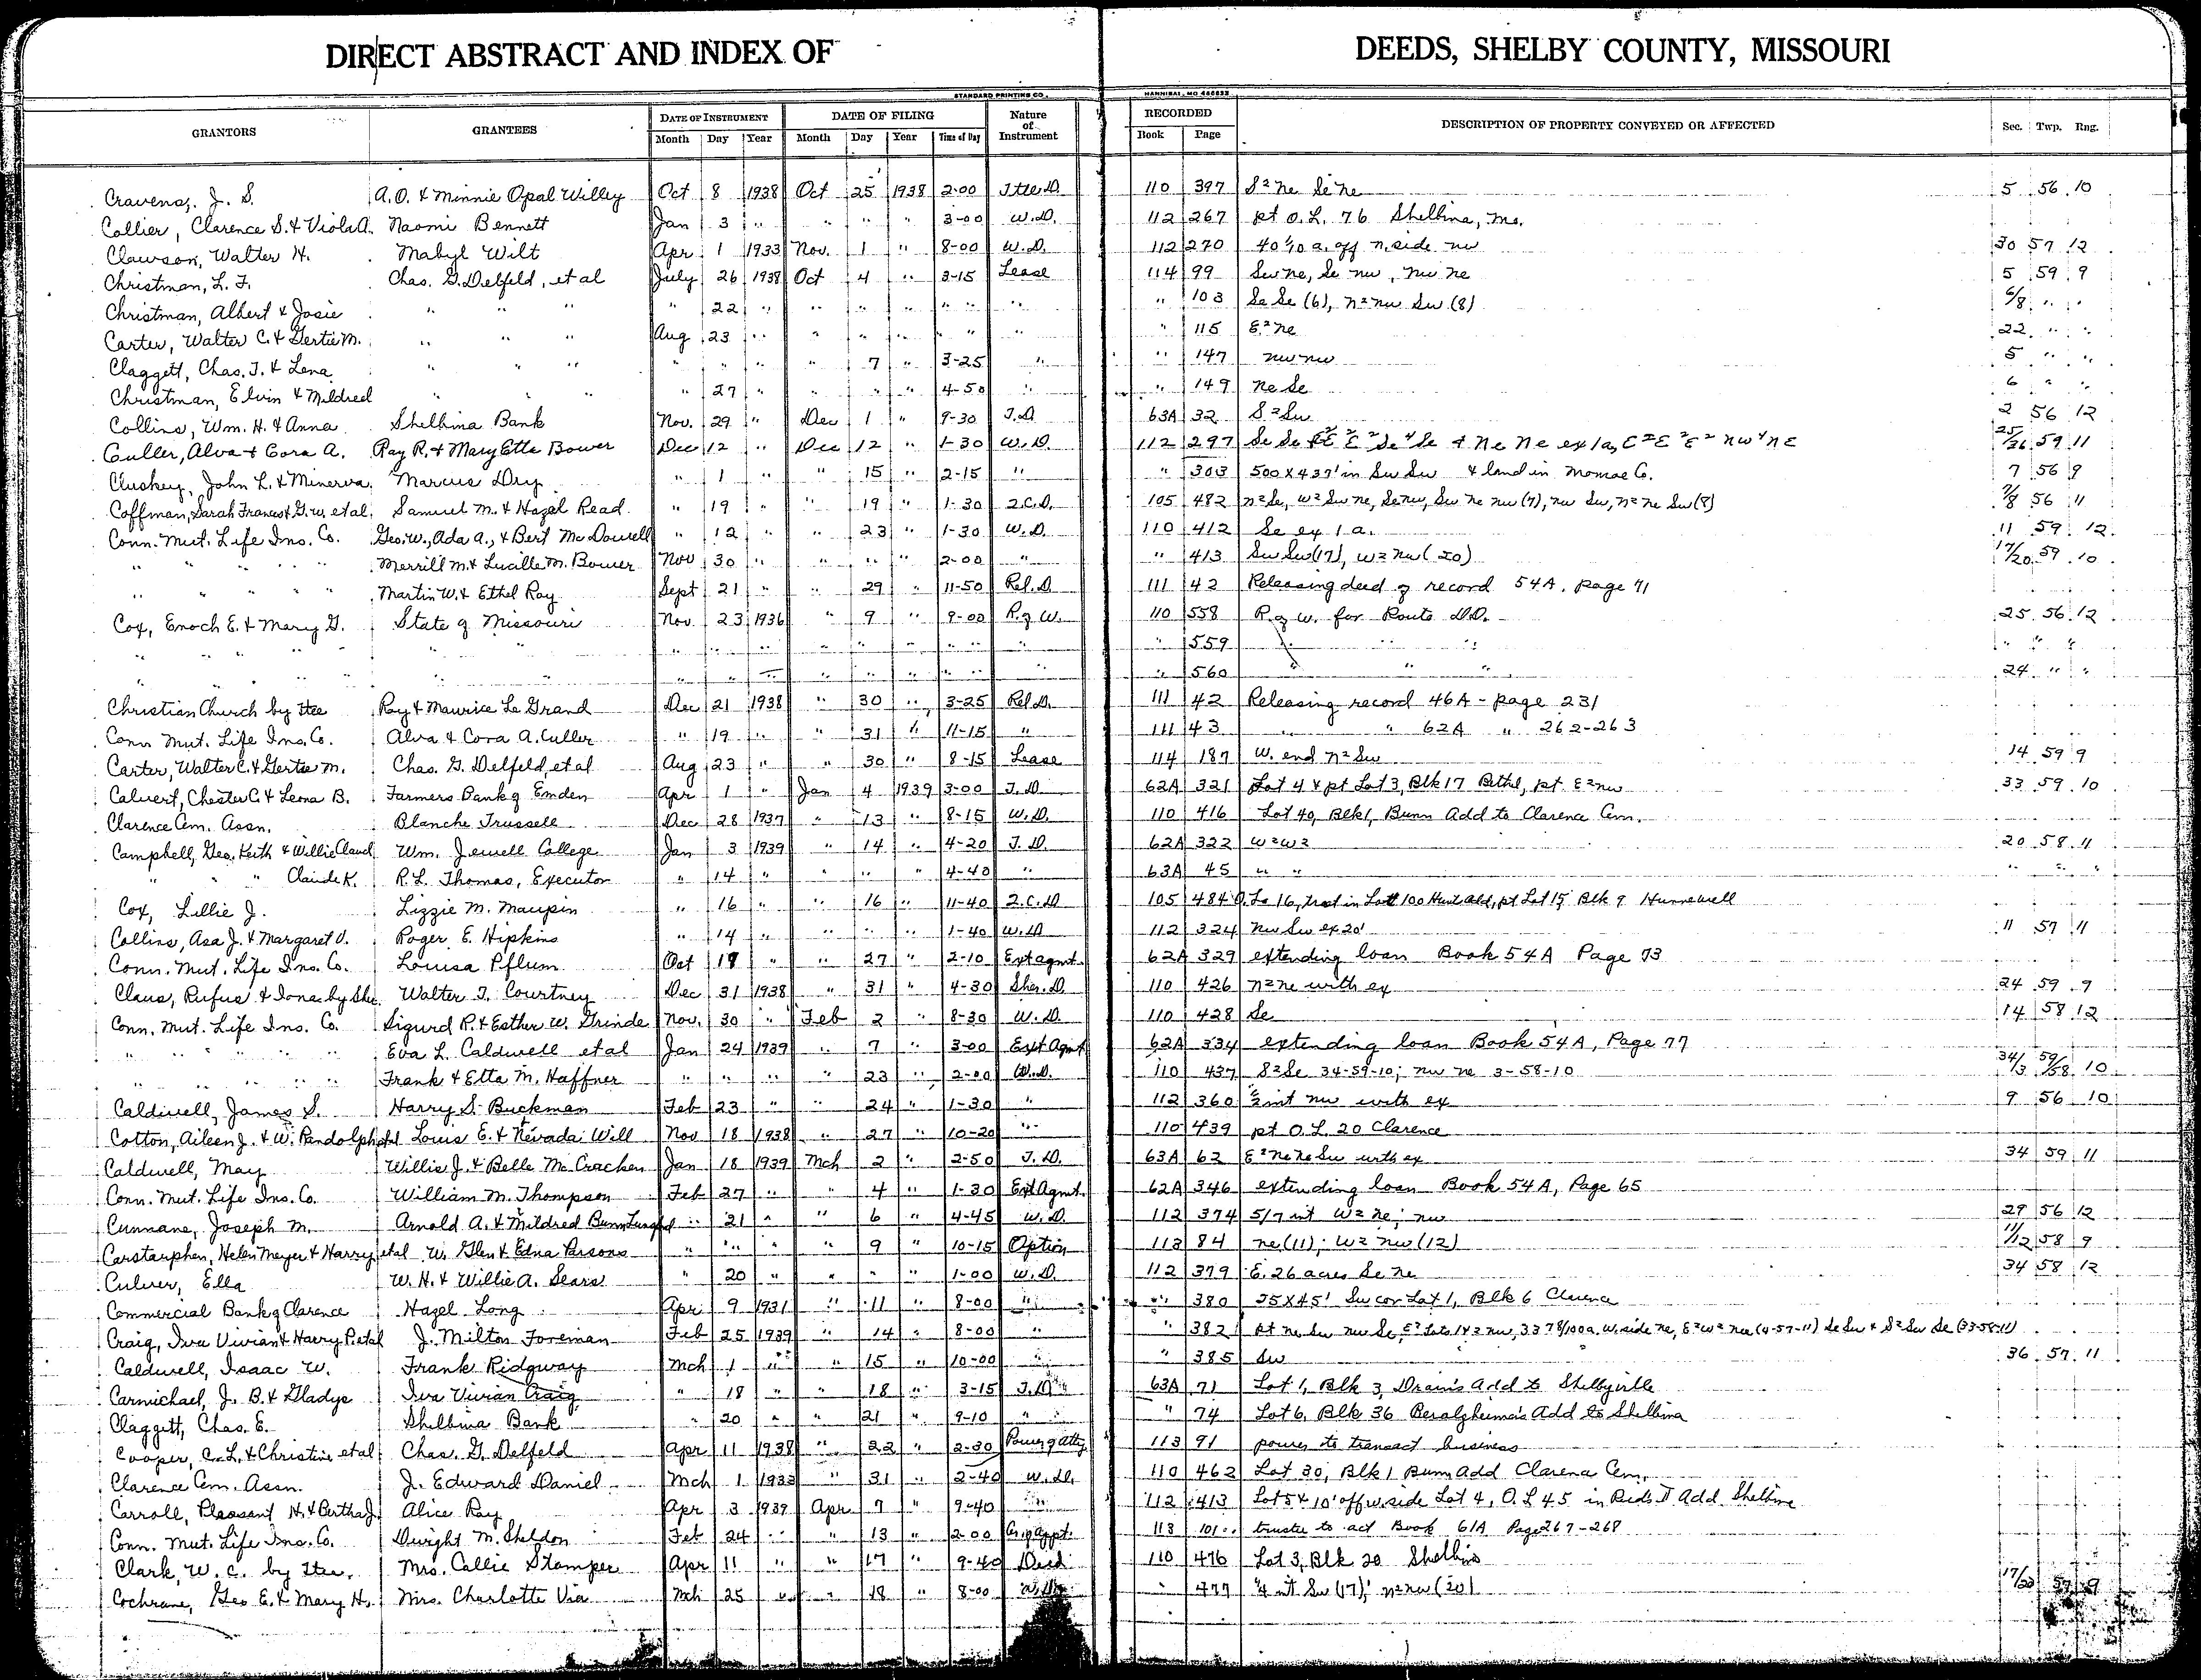 DIRECT ABSTRACT AND INDEX OF DEEDS, SHELBY COUNTY, MISSOURI
STANDARD PRINTING CO. HANNIBAL, MO
GRANTORS GRANTEES DATE OF INSTRUMENT DATE OF FILING Nature of Instrument RECORDED DESCRIPTION OF PROPERTY CONVEYED OR AFFECTED Sec. Twp. Rng.
Month Day Year Month Day Year Time of Day Book Page
Cravens, J. S. A. O. & Minnie Opal Willey Oct 8 1938 Oct 25 1938 2-00 Ttee D. 110 397 S² ne Se ne 5 56 10
Collier, Clarence S. & Viola A. Naomi Bennett Jan 3 " " " " 3-00 W.D. 112 267 pt O.L. 76 Shelbina, Mo.
Clawson, Walter H. Mabyl Wilt Apr 1 1933 Nov. 1 " 8-00 W.D. 112 270 40 a. off n. side nw 30 57 12
Christman, L. F. Chas. G. Delfeld, et al July 26 1938 Oct 4 " 3-15 Lease 114 99 Sw ne, Se nw, nw ne 5 59 9
Christman, Albert & Josie " " " " 22 " " " " " " " 103 Se Se (6), n² nw Sw (8) 6/8 " "
Carter, Walter C. & Gertie M. " " " Aug 23 " " " " " " " 115 E² ne 22 " "
Claggett, Chas. T. & Lena " " " " " " " 7 " 3-25 " " 147 nw nw 5 " "
Christman, Elvin & Mildred " " " " 27 " " " " 4-50 " " 149 ne Se 6 " "
Collins, Wm. H. & Anna Shelbina Bank Nov. 29 " Dec 1 " 9-30 T.D. 63A 32 S² Sw 2 56 12
Culler, Alva & Cora A. Ray R. & Mary Etta Bower Dec 12 " Dec 12 " 1-30 W.D. 112 297 Se Se & ne ne ex 1a, E² E² E² nw⁴ ne 25/36 59 11
Cluskey, John L. & Minerva Marcus Dry " 1 " " 15 " 2-15 " " 303 500 x 437' in Sw Sw & land in Monroe Co. 7 56 9
Coffman, Sarah Frances & G. W. et al Samuel M. & Hazel Read " 19 " " 19 " 1-30 Q.C.D. 105 482 n² Se, w² Sw ne, Se nw, Sw ne nw (7), nw Sw, n² ne Sw (8) 7/8 56 11
Conn. Mut. Life Ins. Co. Geo. W., Ada A., & Bert McDowell " 12 " " 23 " 1-30 W.D. 110 412 Se ex 1 a. 11 59 12
" " " " " Merrill M. & Lucille M. Bower Nov 30 " " " " 2-00 " " 413 Sw Sw (17), w² nw (20) 17/20 59 10
" " " " " Martin W. & Ethel Ray Sept 21 " " 29 " 11-50 Rel. D. 111 42 Releasing deed of record 54A, page 71
Cox, Enoch E. & Mary G. State of Missouri Nov. 23 1936 " 9 " 9-00 R. of W. 110 558 R. of W. for Route D.D. 25 56 12
" " " " " " " " " " " " " 559 " " " " " "
" " " " " " " " " " " " " 560 " " " 24 " "
Christian Church by ttee Ray & Maurice Le Grand Dec 21 1938 " 30 " 3-25 Rel D. 111 42 Releasing record 46A - page 231
Conn Mut. Life Ins. Co. Alva & Cora A. Culler " 19 " " 31 " 11-15 " 111 43 " " 62A " 262-263
Carter, Walter C. & Gertie M. Chas. G. Delfeld, et al Aug 23 " " 30 " 8-15 Lease 114 187 W. end n² Sw 14 59 9
Calvert, Chester C. & Leona B. Farmers Bank of Emden Apr 1 " Jan 4 1939 3-00 T.D. 62A 321 Lot 4 & pt Lot 3, Blk 17 Bethel, pt E² nw 33 59 10
Clarence Cem. Assn. Blanche Trussell Dec 28 1937 " 13 " 8-15 W.D. 110 416 Lot 40, Blk 1, Bunn Add to Clarence Cem.
Campbell, Geo. Keith & Willie Claud Wm. Jewell College Jan 3 1939 " 14 " 4-20 T.D. 62A 322 w² w² 20 58 11
" " " Claude K. R. L. Thomas, Executor " 14 " " " " 4-40 " 63A 45 " " " " "
Cox, Lillie J. Lizzie M. Maupin " 16 " " 16 " 11-40 Q.C.D. 105 484 O.L. 16, tract in Lot 100 Hunt Add, pt Lot 15 Blk 9 Hunnewell
Collins, Asa J. & Margaret V. Roger E. Hipkins " 14 " " " " 1-40 W.D. 112 324 nw Sw ex 20' 11 57 11
Conn. Mut. Life Ins. Co. Louisa Pflum Oct 19 " " 27 " 2-10 Ext agmt. 62A 329 extending loan Book 54A Page 73
Claus, Rufus & Iona by She. Walter T. Courtney Dec 31 1938 " 31 " 4-30 Sher. D. 110 426 n² ne with ex 24 59 9
Conn. Mut. Life Ins. Co. Sigurd R. & Esther W. Grinde Nov. 30 " Feb 2 " 8-30 W.D. 110 428 Se 14 58 12
" " " " " Eva L. Caldwell et al Jan 24 1939 " 7 " 3-00 Ext Agmt 62A 334 extending loan Book 54A, Page 77
" " " " " Frank & Etta M. Haffner " " " " 23 " 2-00 W.D. 110 437 S² Se 34-59-10; nw ne 3-58-10 34/3 59/58 10
Caldwell, James S. Harry S. Buckman Feb 23 " " 24 " 1-30 " 112 360 ½ int nw with ex 9 56 10
Cotton, Aileen J. & W. Randolph et al Louis E. & Nevada Will Nov 18 1938 " 27 " 10-20 " 110 439 pt O.L. 20 Clarence
Caldwell, May Willis J. & Belle McCracken Jan 18 1939 Mch 2 " 2-50 T.D. 63A 62 E² ne ne Sw with ex 34 59 11
Conn. Mut. Life Ins. Co. William M. Thompson Feb 27 " " 4 " 1-30 Ext Agmt. 62A 346 extending loan Book 54A, Page 65
Cunnane, Joseph M. Arnold A. & Mildred Bunn " 21 " " 6 " 4-45 W.D. 112 374 5/7 int w² ne; nw 29 56 12
Carstarphen, Helen Meyer & Harry et al W. Glen & Edna Parsons " " " " 9 " 10-15 Option 113 84 ne (11); w² nw (12) 11/12 58 9
Culver, Ella W. H. & Willie A. Sears " 20 " " " " 1-00 W.D. 112 379 E. 26 acres Se ne 34 58 12
Commercial Bank of Clarence Hazel Long Apr 9 1931 " 11 " 8-00 " " 380 25 x 45' Sw cor Lot 1, Blk 6 Clarence
Craig, Iva Vivian & Harry P. et al J. Milton Foreman Feb 25 1939 " 14 " 8-00 " " 382 pt ne Sw nw Se, E² Lots 1 & 2 nw, 33 78/100 a. W. side ne, E² w² nw (4-57-11) Se Sw & S² Sw Se (33-58-11)
Caldwell, Isaac W. Frank Ridgway Mch 1 " " 15 " 10-00 " " 385 Sw 36 57 11
Carmichael, J. B. & Gladys Iva Vivian Craig " 18 " " 18 " 3-15 T.D. 63A 71 Lot 1, Blk 3, Drain's Add to Shelbyville
Claggett, Chas. E. Shelbina Bank " 20 " " 21 " 9-10 " " 74 Lot 6, Blk 36 Add to Shelbina
Cooper, C. L. & Christine et al Chas. G. Delfeld Apr 11 1938 " 22 " 2-30 Power of Atty 113 91 power to transact business
Clarence Cem. Assn. J. Edward Daniel Mch 1 1933 " 31 " 2-40 W.D. 110 462 Lot 30, Blk 1 Bunn Add Clarence Cem.
Carroll, Pleasant H. & Bertha J. Alice Ray Apr 3 1939 Apr 7 " 9-40 " 112 413 Lot 5 & 10' off w. side Lot 4, O.L. 45 in Add Shelbina
Conn. Mut. Life Ins. Co. Dwight M. Sheldon Feb 24 " " 13 " 2-00 113 101 trustee to act Book 61A Page 267-268
Clark, W. C. by ttee. Mrs. Callie Stamper Apr 11 " " 17 " 9-40 Deed 110 476 Lot 3, Blk 20 Shelbina
Cochrane, Geo E. & Mary H. Mrs. Charlotte Via Mch 25 " " 18 " 8-00 W.D. " 477 ¼ int Sw (17); n² nw (20) 17/20 57 9